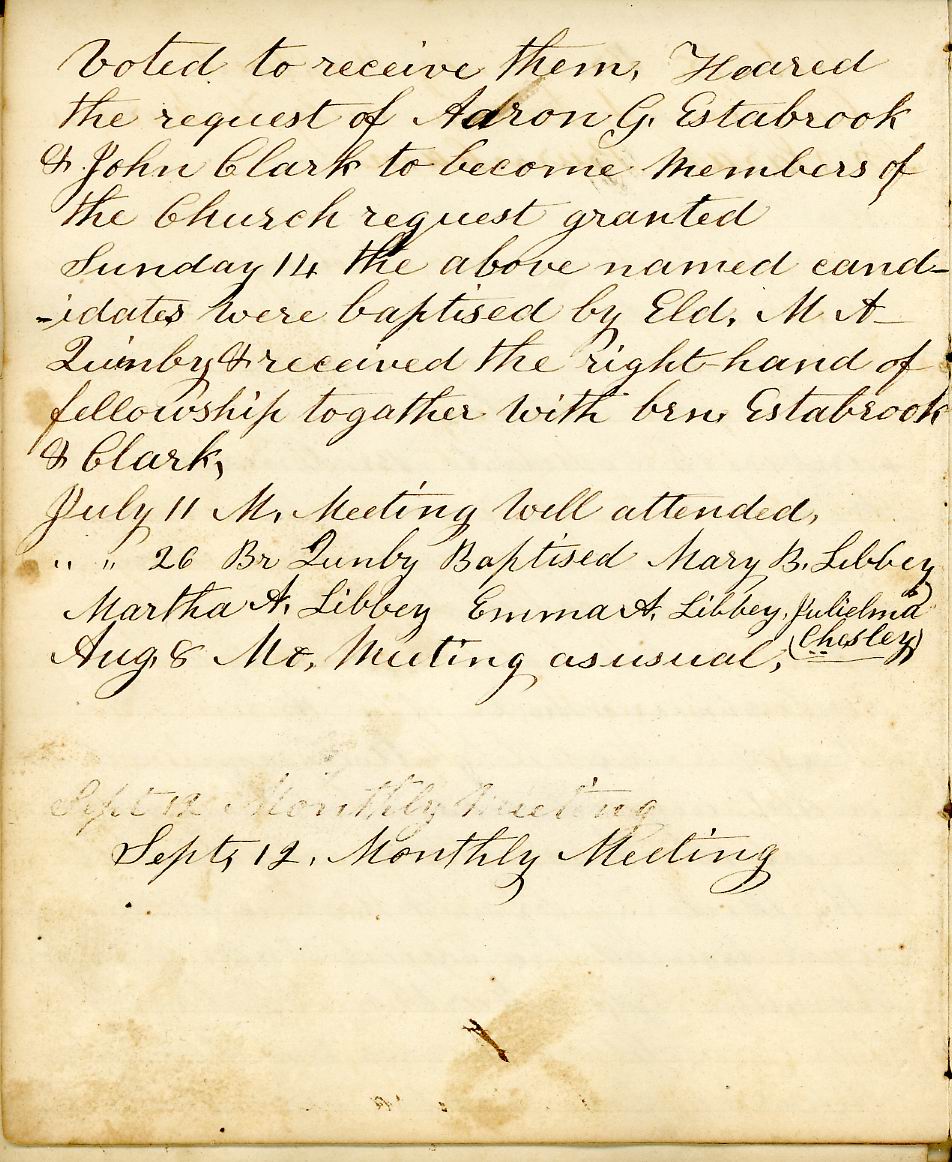 Voted to receive them, Heared
the request of Aaron G. Estabrook
& John Clark to become members of
the Church request granted
Sunday 14 the above named cand-
-idates were baptised by Eld. M A
Quinby & received the right hand of
fellowship togather with brn. Estabrook
& Clark,
July 11 M. Meeting well attended,
" " 26 Br Qunby Baptised Mary B. Libbey
Martha A. Libbey Emma A. Libbey, Julielma
(Chesley)
Aug. 8 Mt. Meeting as usual,
Sept 12 Monthly Meeting
Sept, 12, Monthly Meeting